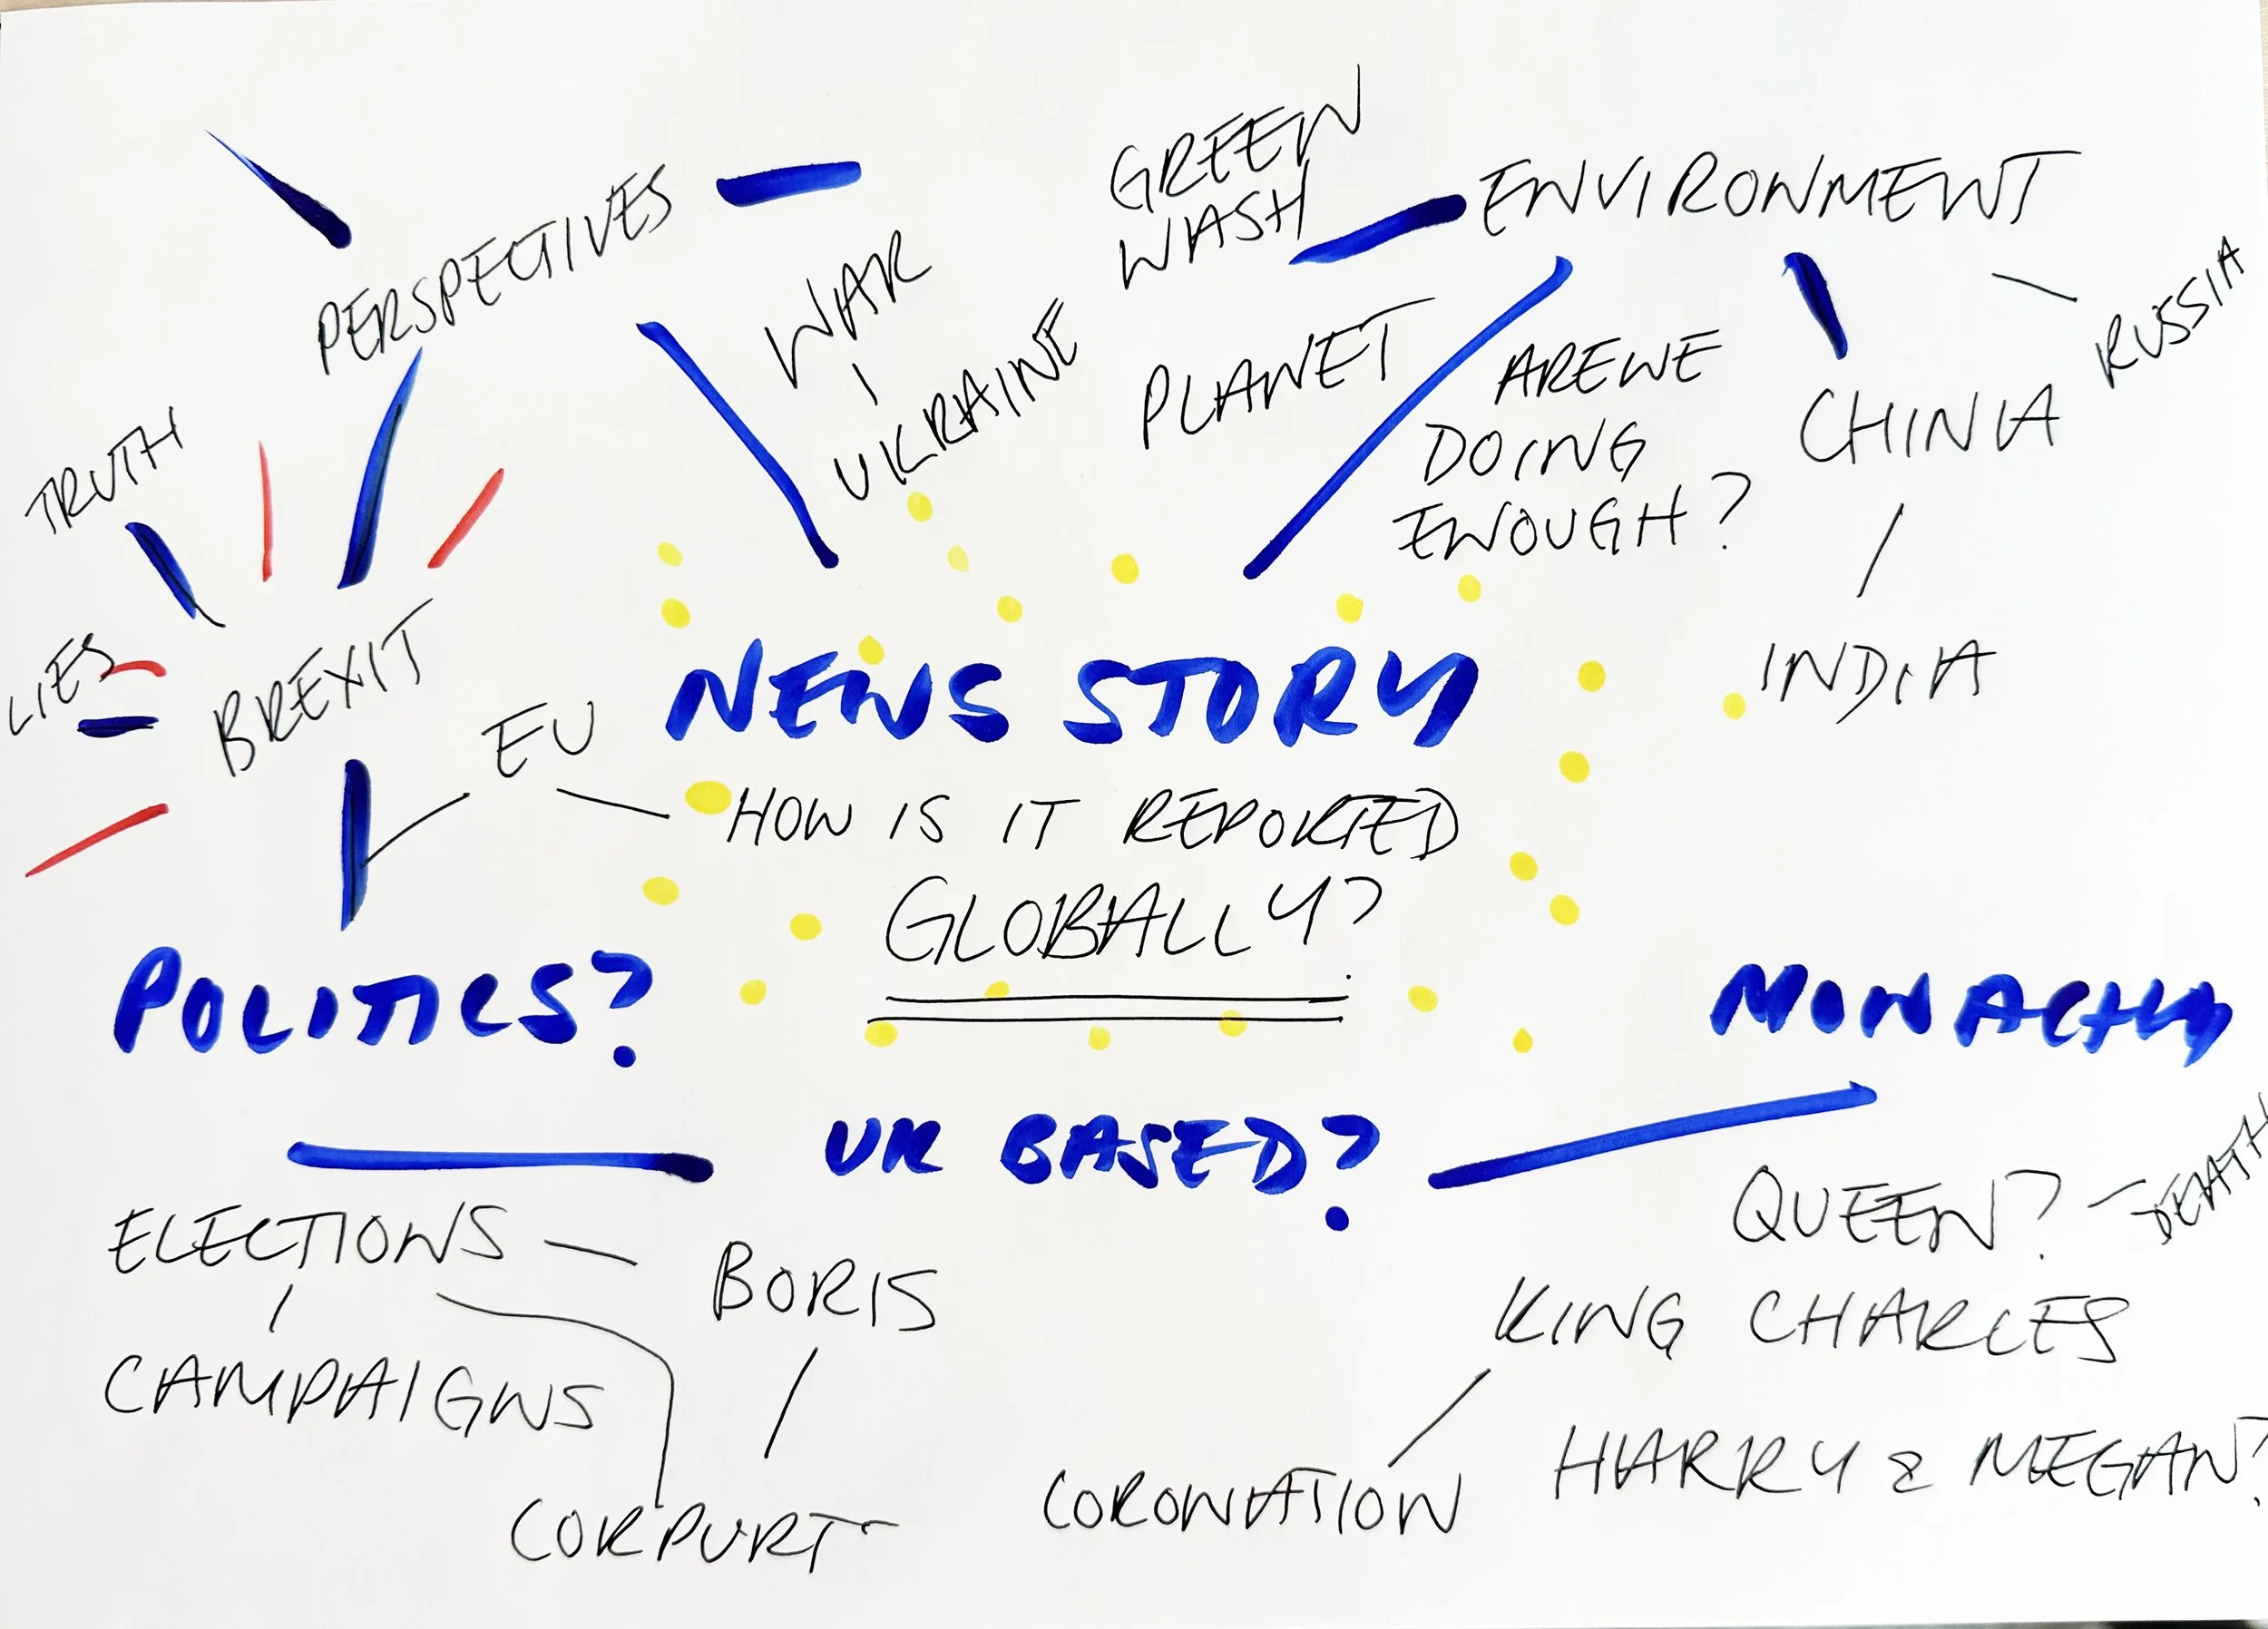 PERSPECTIVES
TRUTH
LIES
BREXIT
EU
WAR
UKRAINE
GREEN
WASH
ENVIRONMENT
PLANET
ARE WE
DOING
ENOUGH?
CHINA
RUSSIA
INDIA
NEWS STORY
HOW IS IT REPORTED
GLOBALLY?
POLITICS?
UK BASED?
MONACHY
ELECTIONS
BORIS
CAMPAIGNS
QUEEN?
DEATH
KING CHARLES
CORONATION
HARRY & MEGAN?